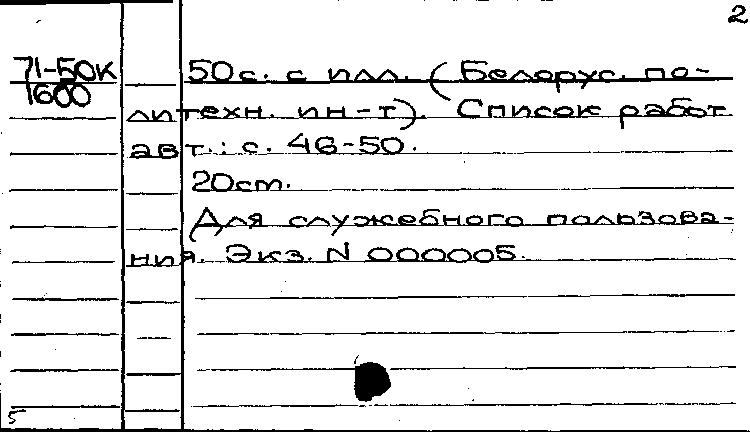 2
71-50к 50с. с илл. (Белорус. по-
1600
литехн. ин-т). Список работ
авт.: с. 46-50.
20cm.
Для служебного пользова-
ния. Экз. N 000005.
5